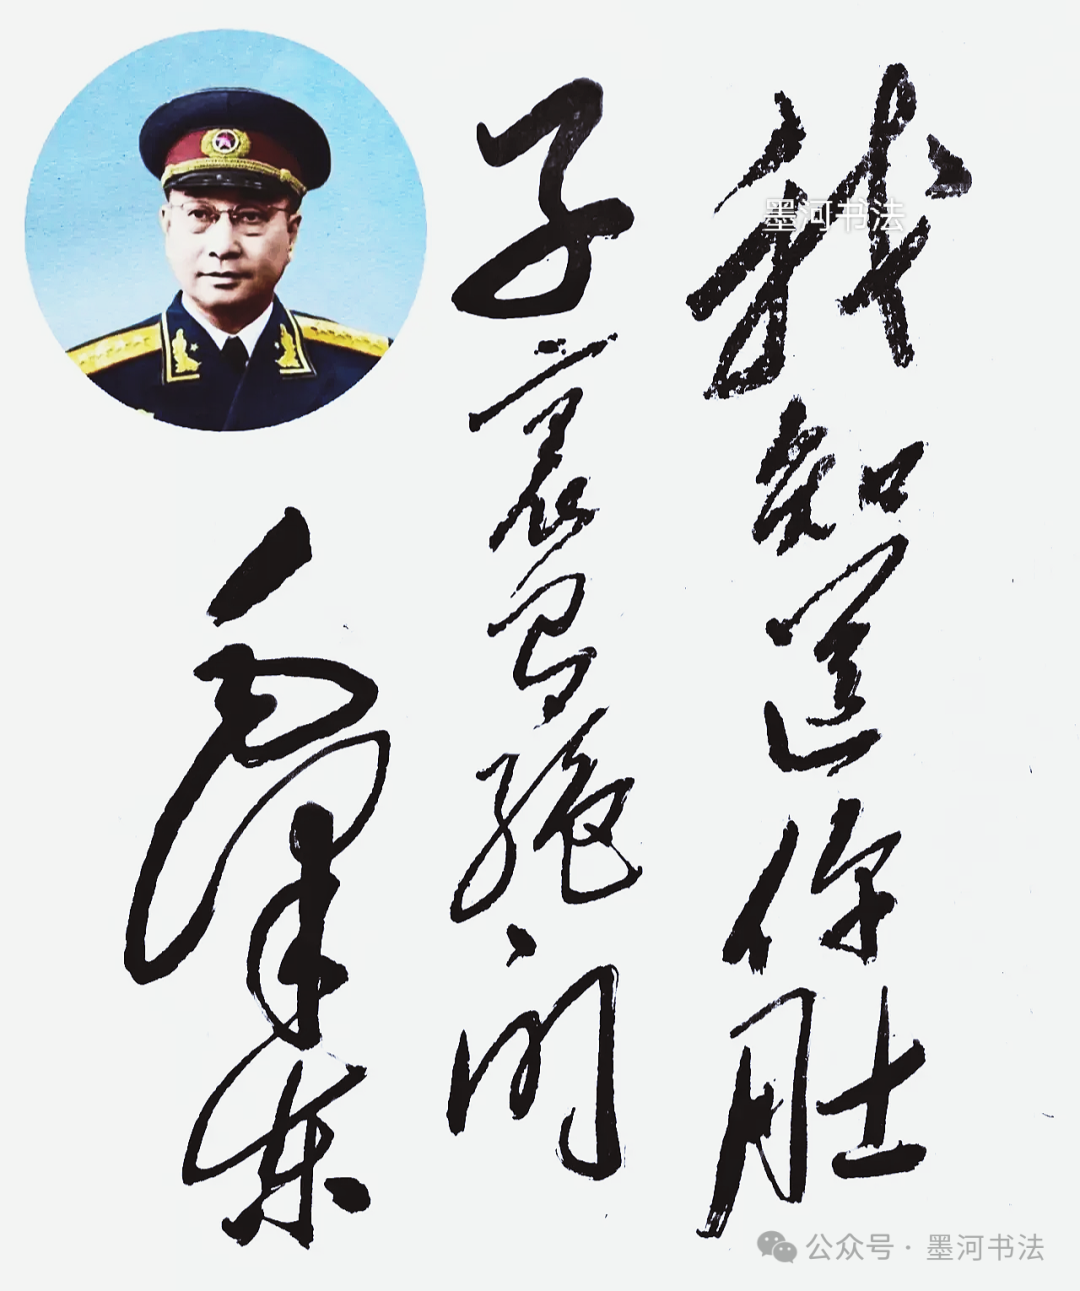 墨河书法
我知道你肚
子裏
毛泽东
公众号·墨河书法